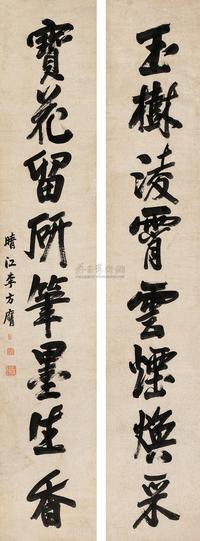 玉樹凌霄雲煙煥采
寶花留研筆墨生香
晴江李方膺